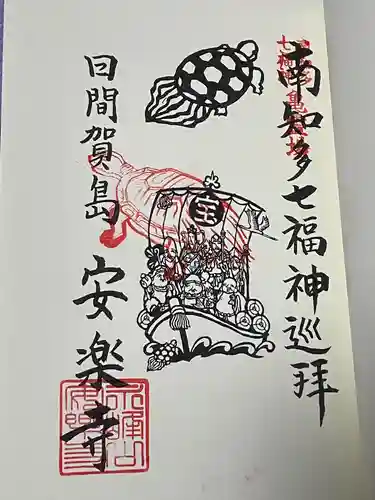 南知多七福神巡拝
宝
日間賀島 安楽寺